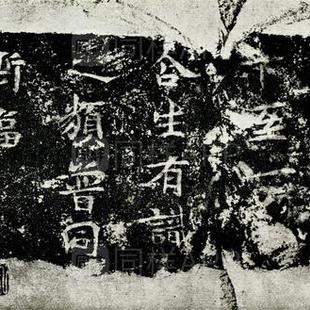 至一
含生有識
之類普同
斯福